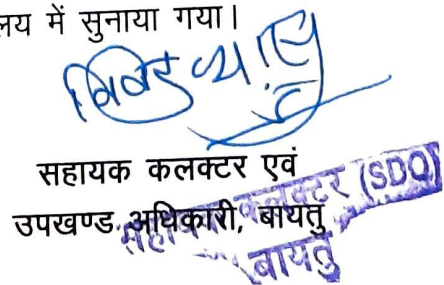 लय में सुनाया गया।
सहायक कलक्टर एवं
उपखण्ड अधिकारी, बायतु
सहायक कलक्टर (SDO)
बायतु